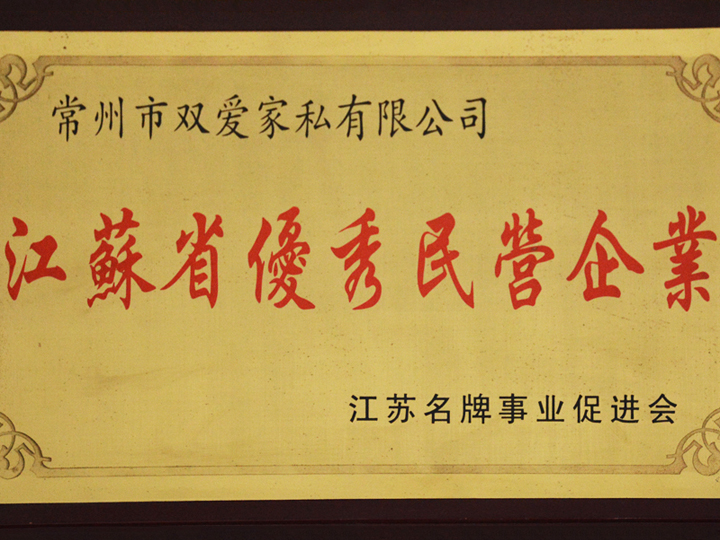 常州市双爱家私有限公司
江蘇省優秀民營企業
江苏名牌事业促进会